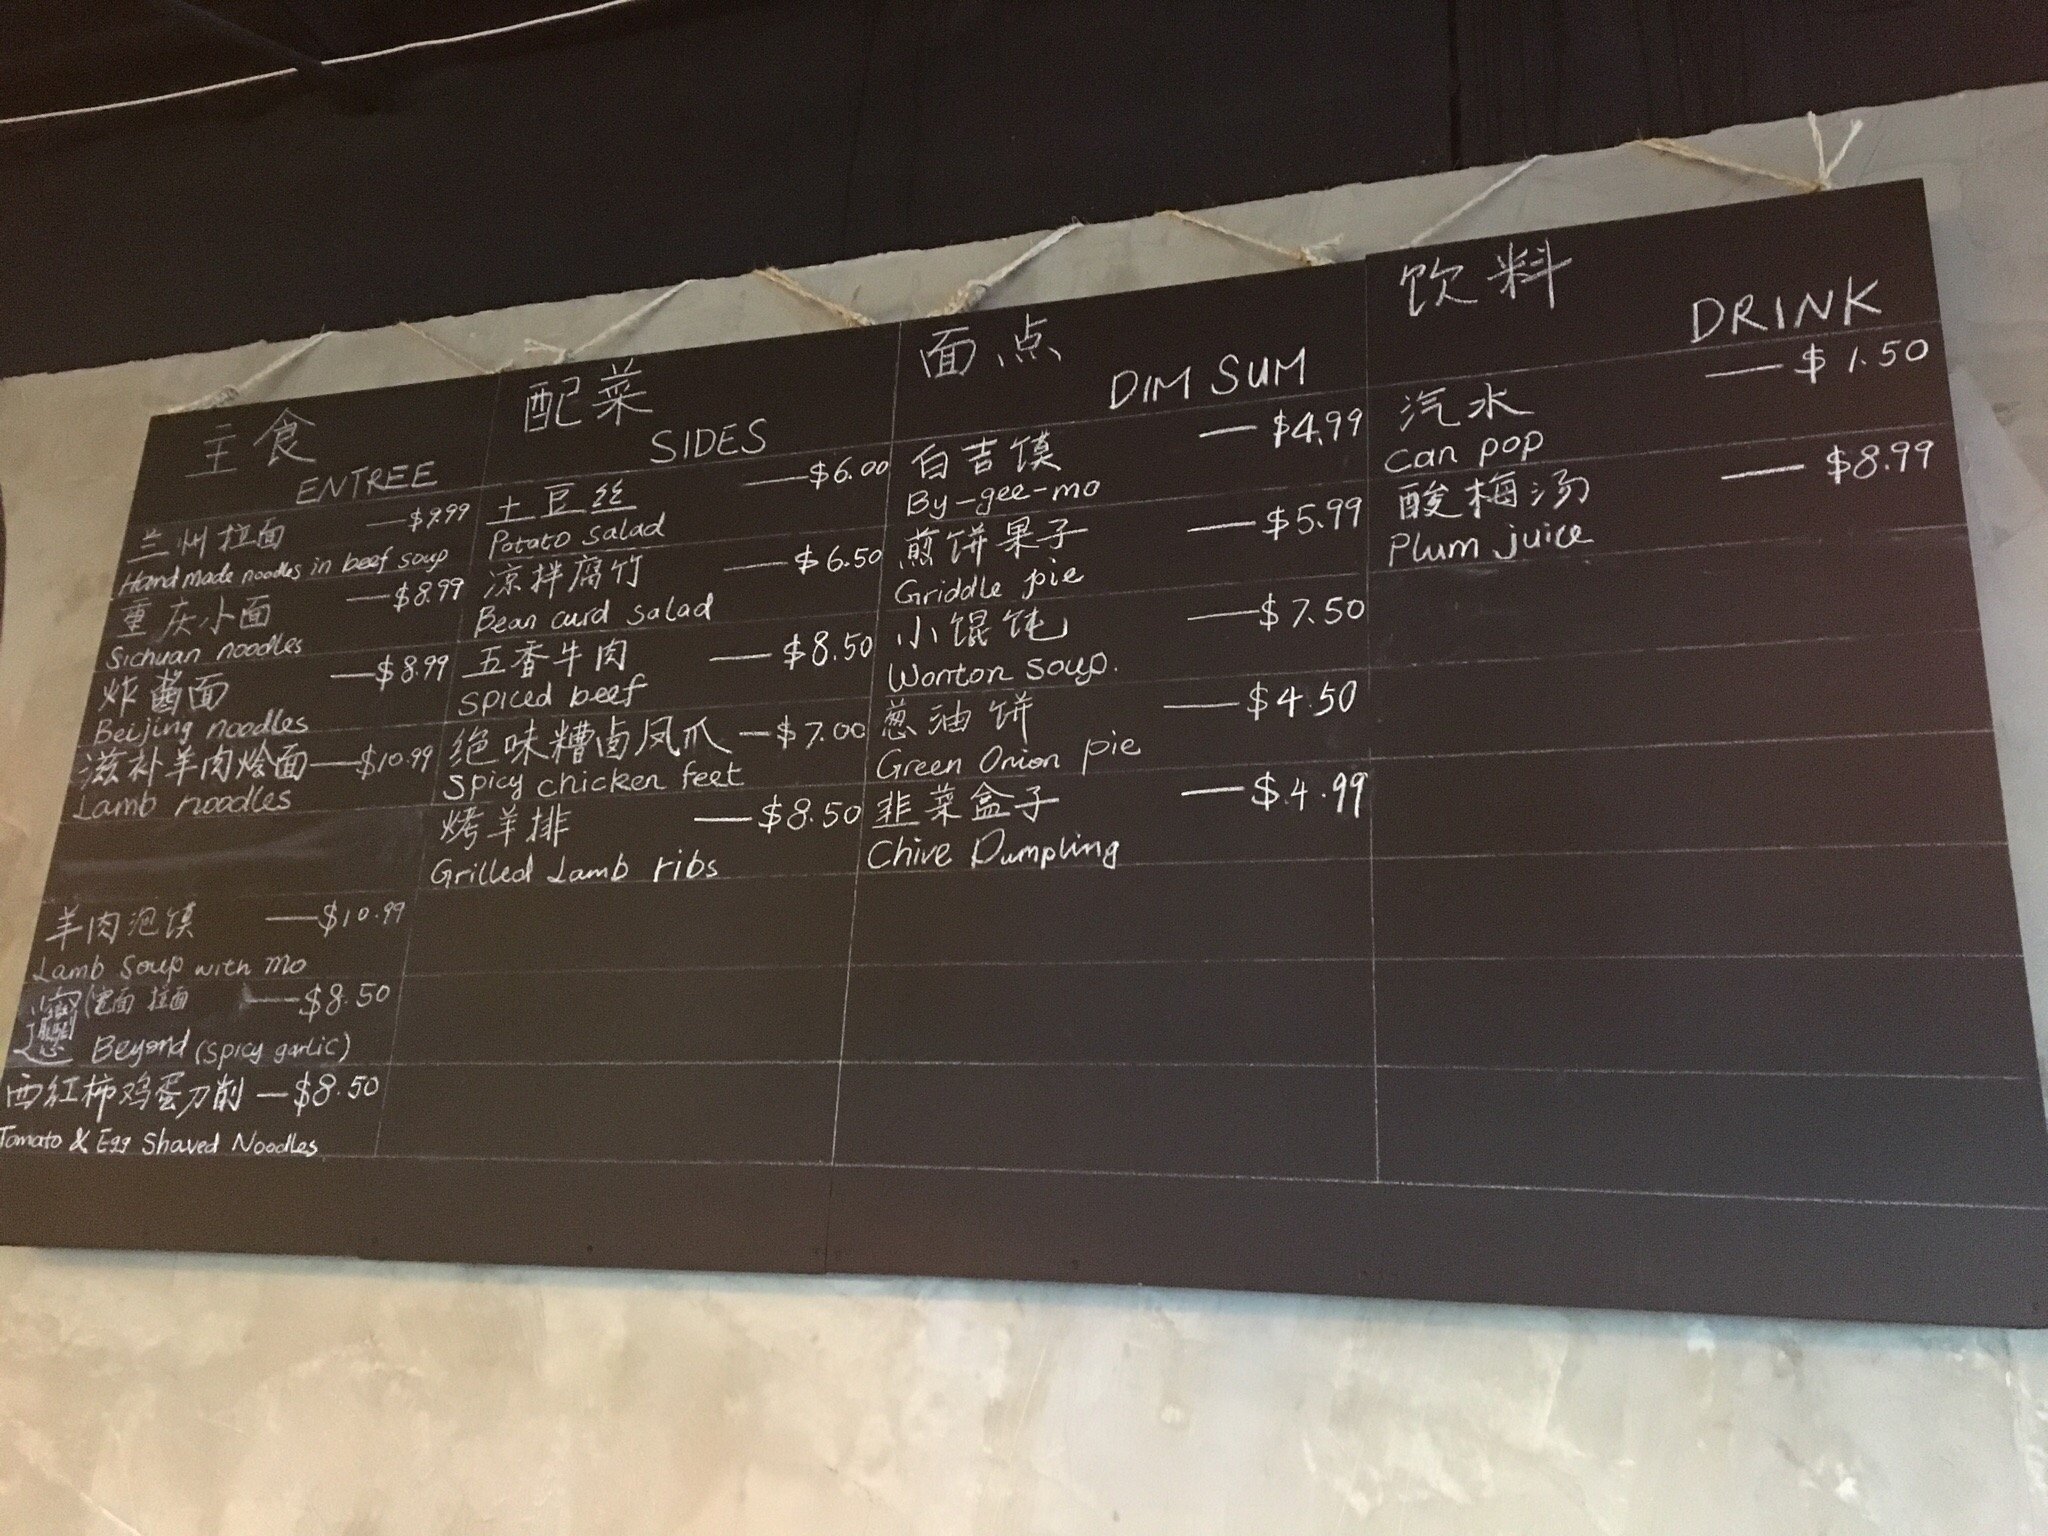 主食
ENTREE
兰州拉面 —$9.99
Hand made noodles in beef soup
重庆小面 —$8.99
Sichuan noodles
炸酱面 —$8.99
Beijing noodles
滋补羊肉烩面—$10.99
Lamb noodles
羊肉泡馍 —$10.99
Lamb Soup with Mo
宽面 拉面 —$8.50
Beyond (spicy garlic)
西红柿鸡蛋刀削 —$8.50
Tomato & Egg Shaved Noodles
配菜
SIDES
土豆丝 —$6.00
Potato Salad
凉拌腐竹 —$6.50
Bean curd salad
五香牛肉 —$8.50
Spiced beef
绝味糟卤凤爪 —$7.00
Spicy chicken feet
烤羊排 —$8.50
Grilled Lamb ribs
面点
DIM SUM
白吉馍 —$4.99
By-gee-mo
煎饼果子 —$5.99
Griddle pie
小馄饨 —$7.50
Wonton Soup.
葱油饼 —$4.50
Green Onion pie
韭菜盒子 —$4.99
Chive Dumpling
饮料
DRINK
汽水 —$1.50
Can pop
酸梅汤 —$8.99
Plum juice